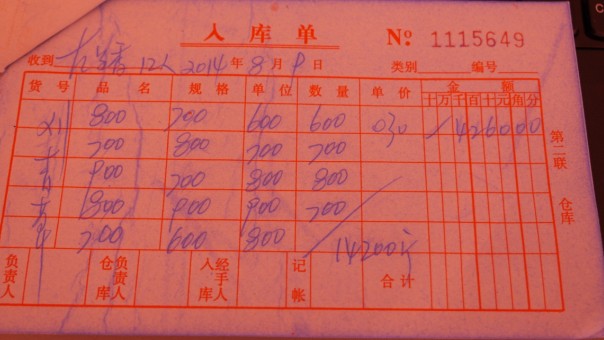 入库单
№ 1115649
收到 12人 2014年8月9日 类别 编号
货号 品名 规格 单位 数量 单价 金额
十万千百十元角分
800 700 600 600 030 4260.00
700 800 700 700
900 700 800 800
800 900 900 700
700 600 800
14200
合计
负责人 仓库负责人 入库经手人 记帐
第二联 仓库